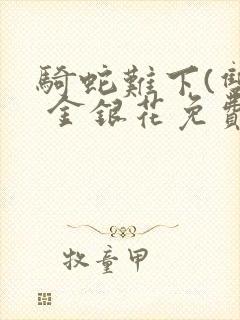 騎蛇難下(雙
金銀花免費
牧童甲